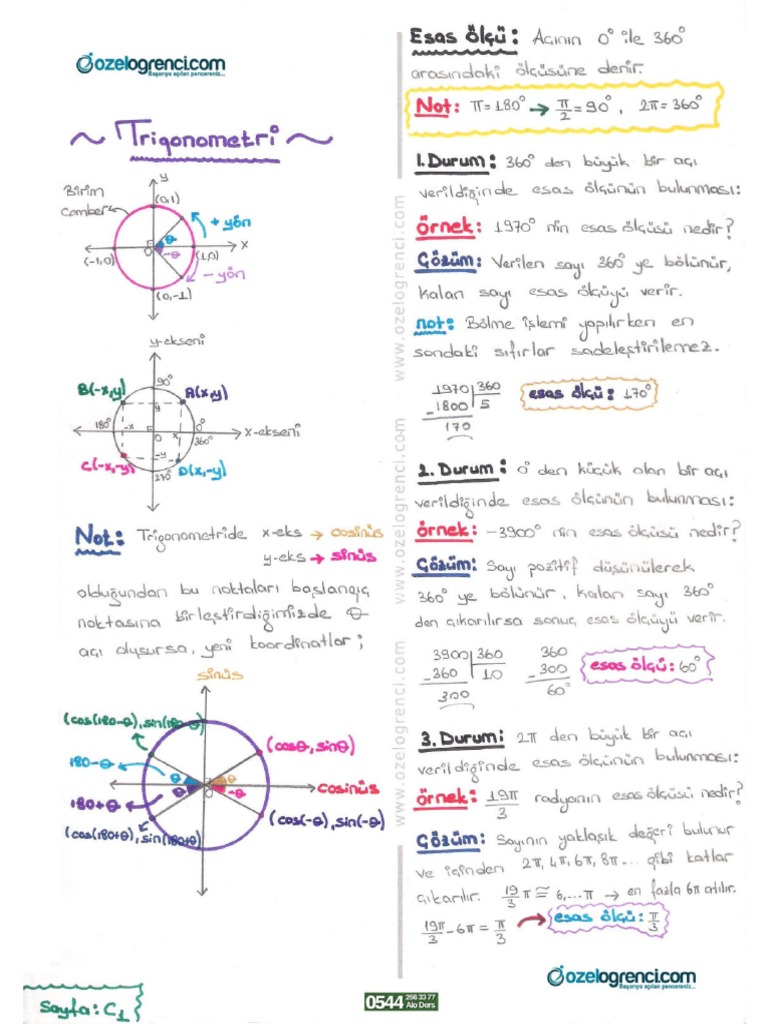 özelogrenci.com
Başarıya açılan pencereniz...
~ Trigonometri ~
Birim
Çember
y
(0,1)
+ yön
θ
-θ
O
x
(-1,0)
(1,0)
(0,-1)
- yön
y-ekseni
B(-x,y)
90°
A(x,y)
y
180°
-x
O
x
0°
360°
x-ekseni
-y
C(-x,-y)
270°
D(x,-y)
Not: Trigonometride x-eks → cosinüs
y-eks → sinüs
olduğundan bu noktaları başlangıç
noktasına birleştirdiğimizde θ
açı oluşursa, yeni koordinatlar;
sinüs
(cos(180-θ), sin(180-θ)
(cosθ, sinθ)
180-θ
θ
θ
cosinüs
180+θ
θ
-θ
O
(cos(180+θ), sin(180+θ)
(cos(-θ), sin(-θ)
Sayfa: C1
www.ozelogrenci.com
www.ozelogrenci.com
www.ozelogrenci.com
Esas Ölçü: Açının 0° ile 360°
arasındaki ölçüsüne denir.
Not: π=180° → π/2=90°, 2π=360°
1.Durum: 360° den büyük bir açı
verildiğinde esas ölçünün bulunması:
Örnek: 1970° nin esas ölçüsü nedir?
Çözüm: Verilen sayı 360° ye bölünür,
kalan sayı esas ölçüyü verir.
not: Bölme işlemi yapılırken en
sondaki sıfırlar sadeleştirilemez.
1970 360
-1800 5
170
esas ölçü: 170°
2. Durum: 0° den küçük olan bir açı
verildiğinde esas ölçünün bulunması:
Örnek: -3900° nin esas ölçüsü nedir?
Çözüm: Sayı pozitif düşünülerek
360° ye bölünür, kalan sayı 360°
den çıkarılırsa sonuç esas ölçüyü verir.
3900 360
-360 10
300
360
-300
60°
esas ölçü: 60°
3. Durum: 2π den büyük bir açı
verildiğinde esas ölçünün bulunması:
Örnek: 19π/3 radyanın esas ölçüsü nedir?
Çözüm: Sayının yaklaşık değeri bulunur
ve içinden 2π, 4π, 6π, 8π... gibi katlar
çıkarılır. 19/3 π ≅ 6,...π → en fazla 6π atılır.
19π/3 - 6π = π/3
esas ölçü: π/3
0544 256 33 77
Alo Ders
özelogrenci.com
Başarıya açılan pencereniz...